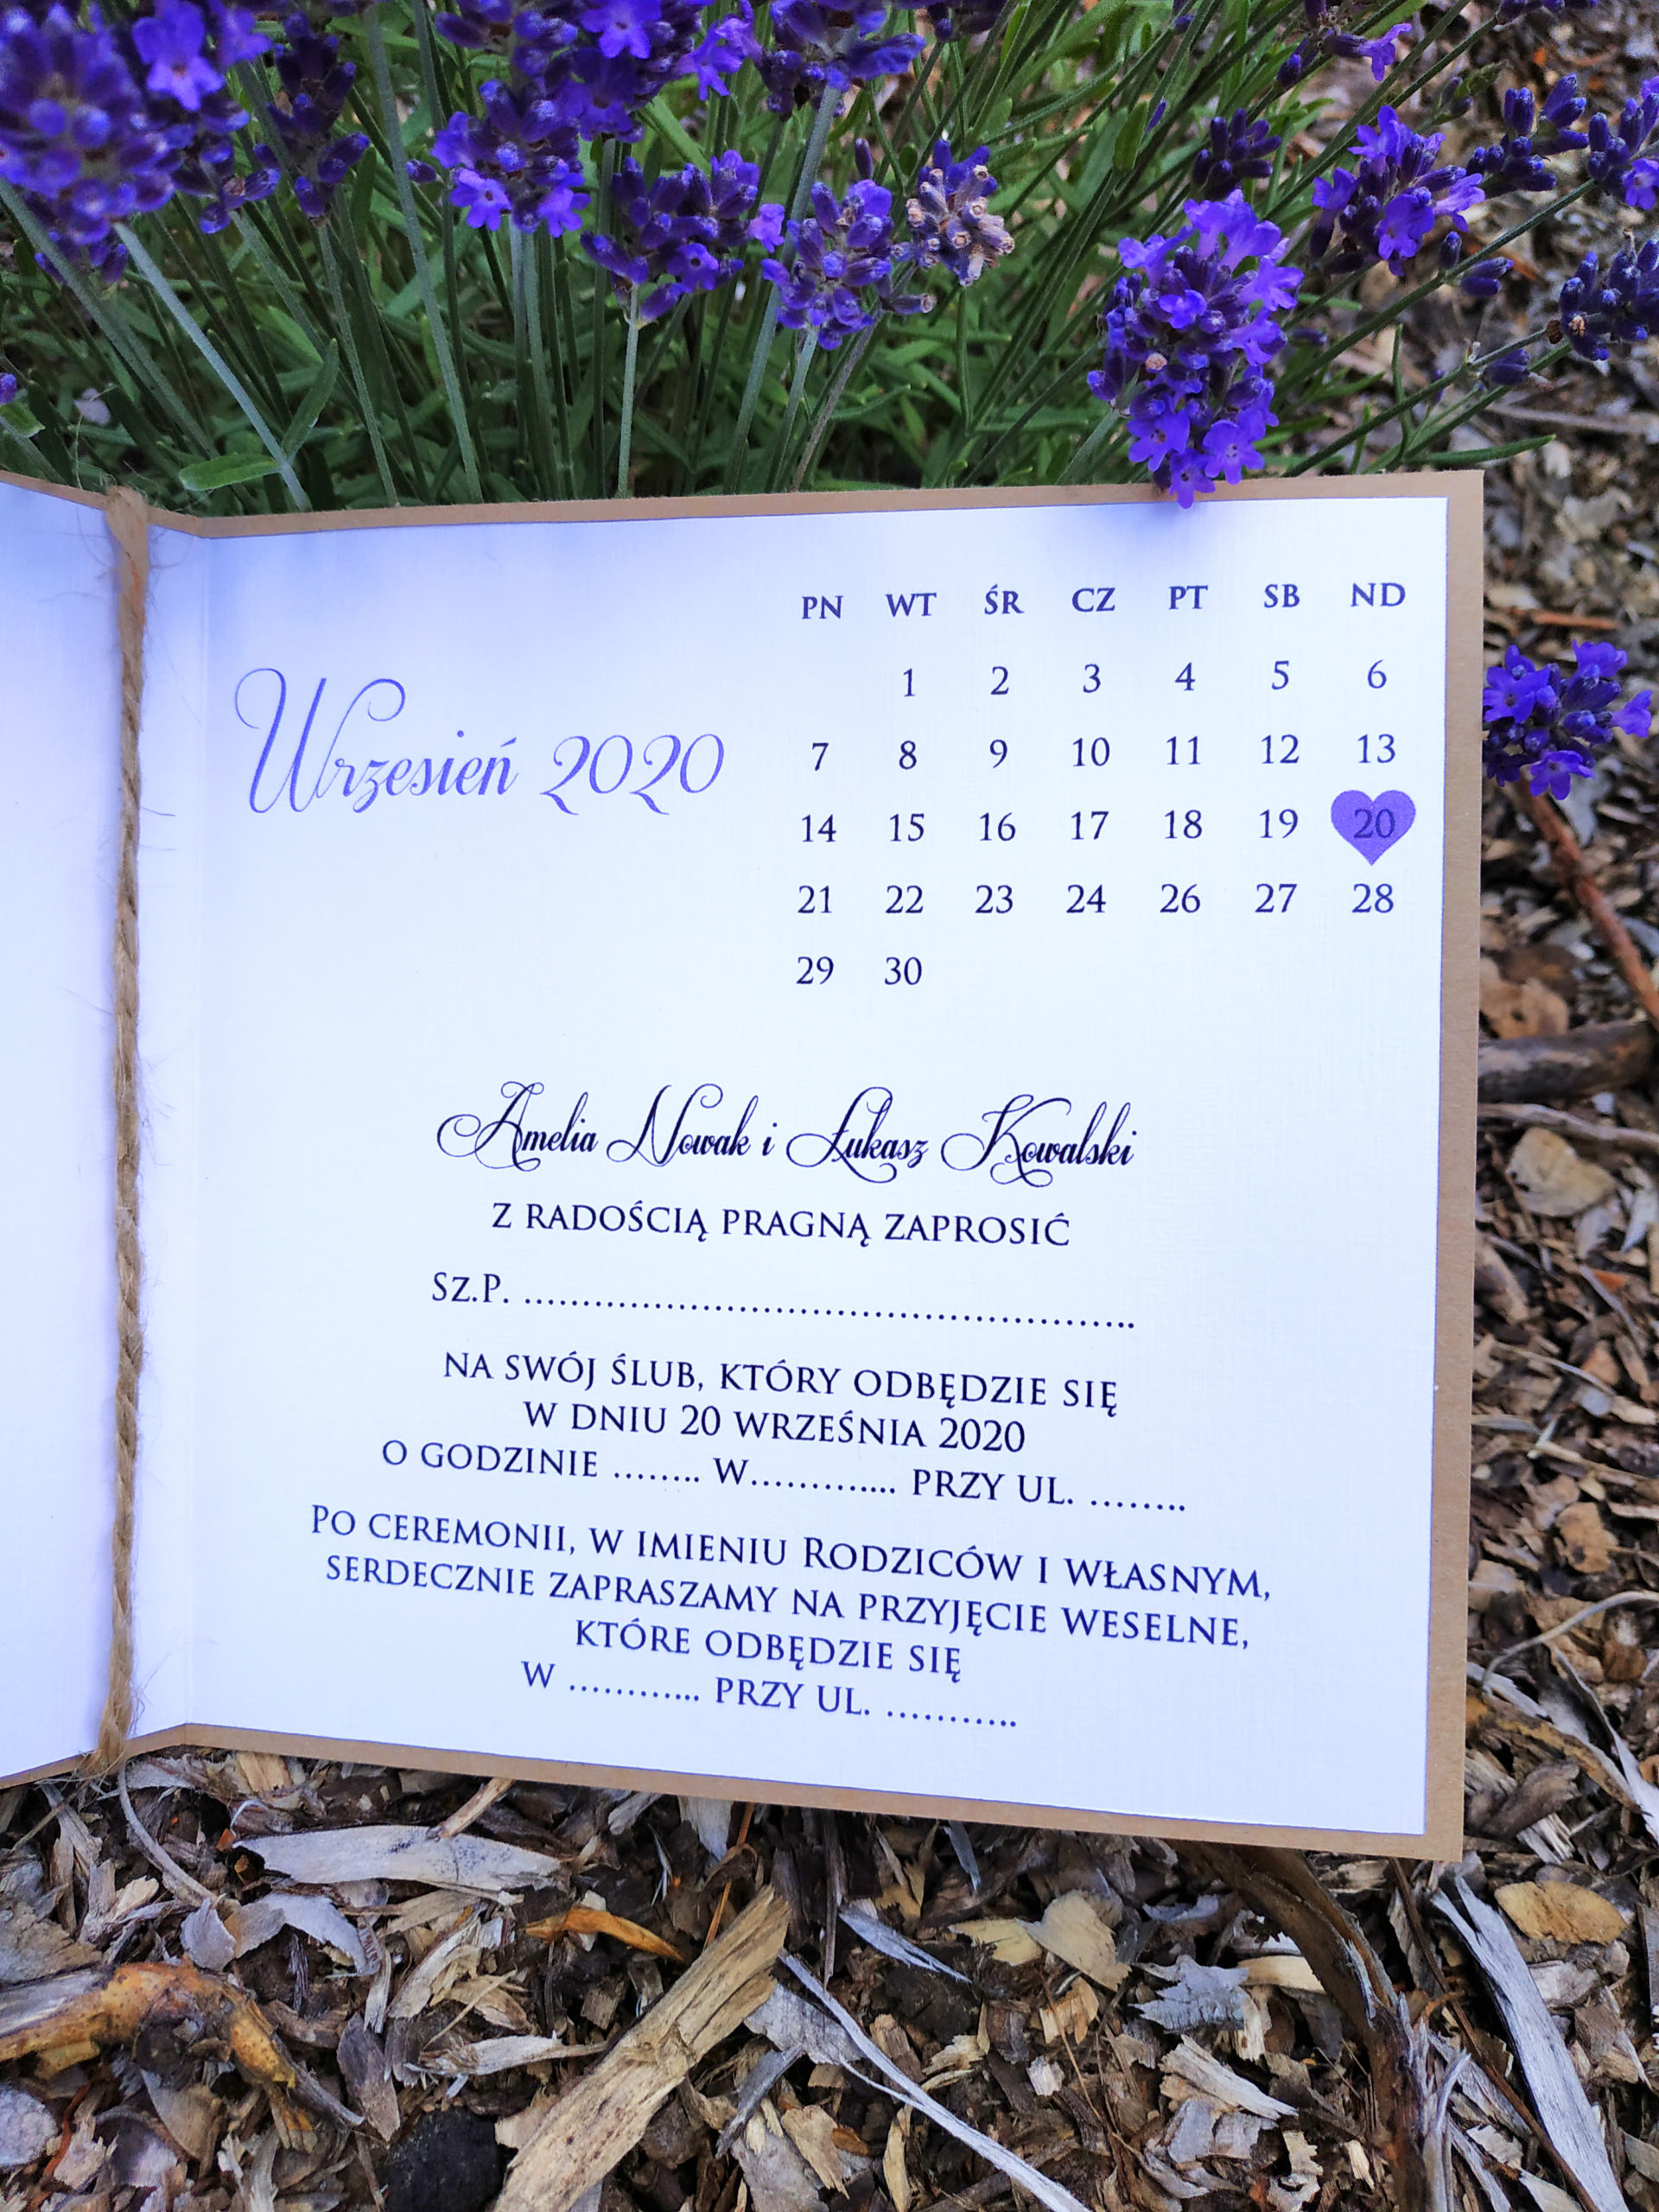 Wrzesień 2020
PN WT ŚR CZ PT SB ND
1 2 3 4 5 6
7 8 9 10 11 12 13
14 15 16 17 18 19 20
21 22 23 24 26 27 28
29 30
Amelia Nowak i Łukasz Kowalski
Z RADOŚCIĄ PRAGNĄ ZAPROSIĆ
SZ.P. ......................................................
NA SWÓJ ŚLUB, KTÓRY ODBĘDZIE SIĘ
W DNIU 20 WRZEŚNIA 2020
O GODZINIE ........ W.............. PRZY UL. .........
PO CEREMONII, W IMIENIU RODZICÓW I WŁASNYM,
SERDECZNIE ZAPRASZAMY NA PRZYJĘCIE WESELNE,
KTÓRE ODBĘDZIE SIĘ
W ............ PRZY UL. ............